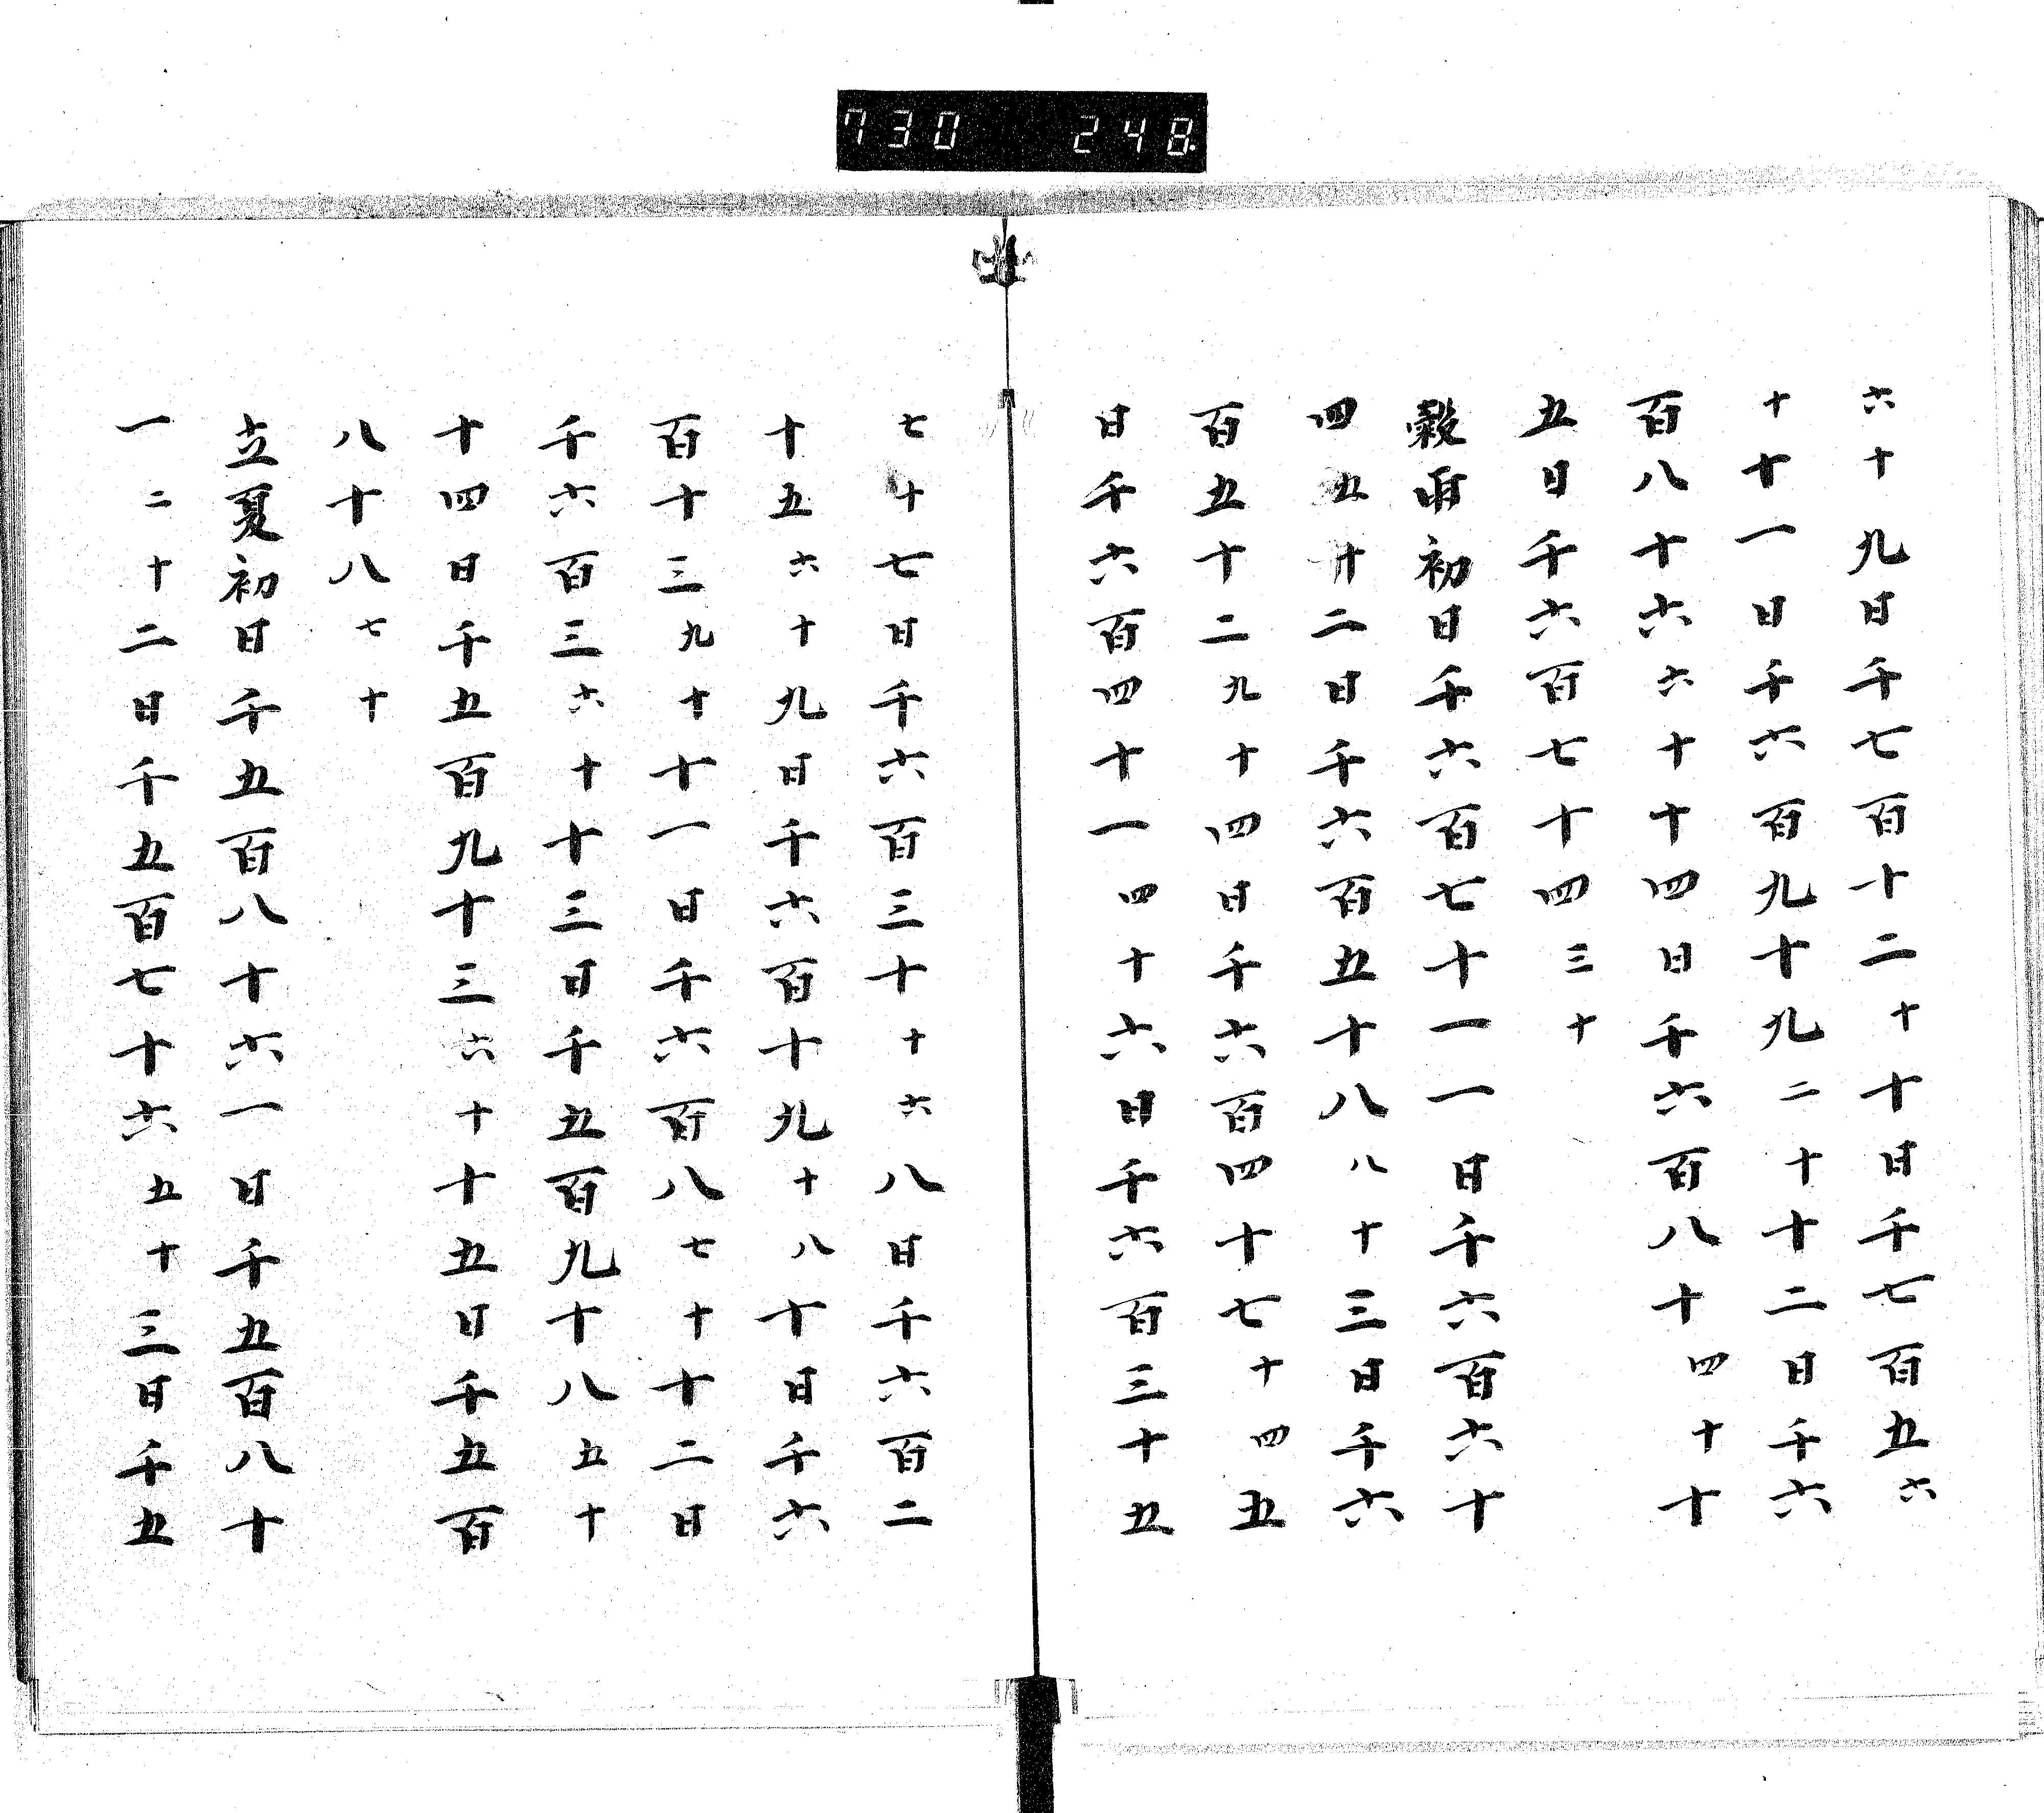 730 248.
六十九日千七百十二十十日千七百五六
十十一日千六百九十九二十十二日千六
百八十六六十十四日千六百八十四十十
五日千六百七十四三十
穀雨初日千六百七十一一日千六百六十
四五十二日千六百五十八八十三日千六
百五十二九十四日千六百四十七十四五
日千六百四十一四十六日千六百三十五
七十七日千六百三十十六八日千六百二
十五六十九日千六百十九十八十日千六
百十三九十十一日千六百八七十十二日
千六百三六十十三日千五百九十八五十
十四日千五百九十三六十十五日千五百
八十八七十
立夏初日千五百八十六一日千五百八十
一二十二日千五百七十六五十三日千五